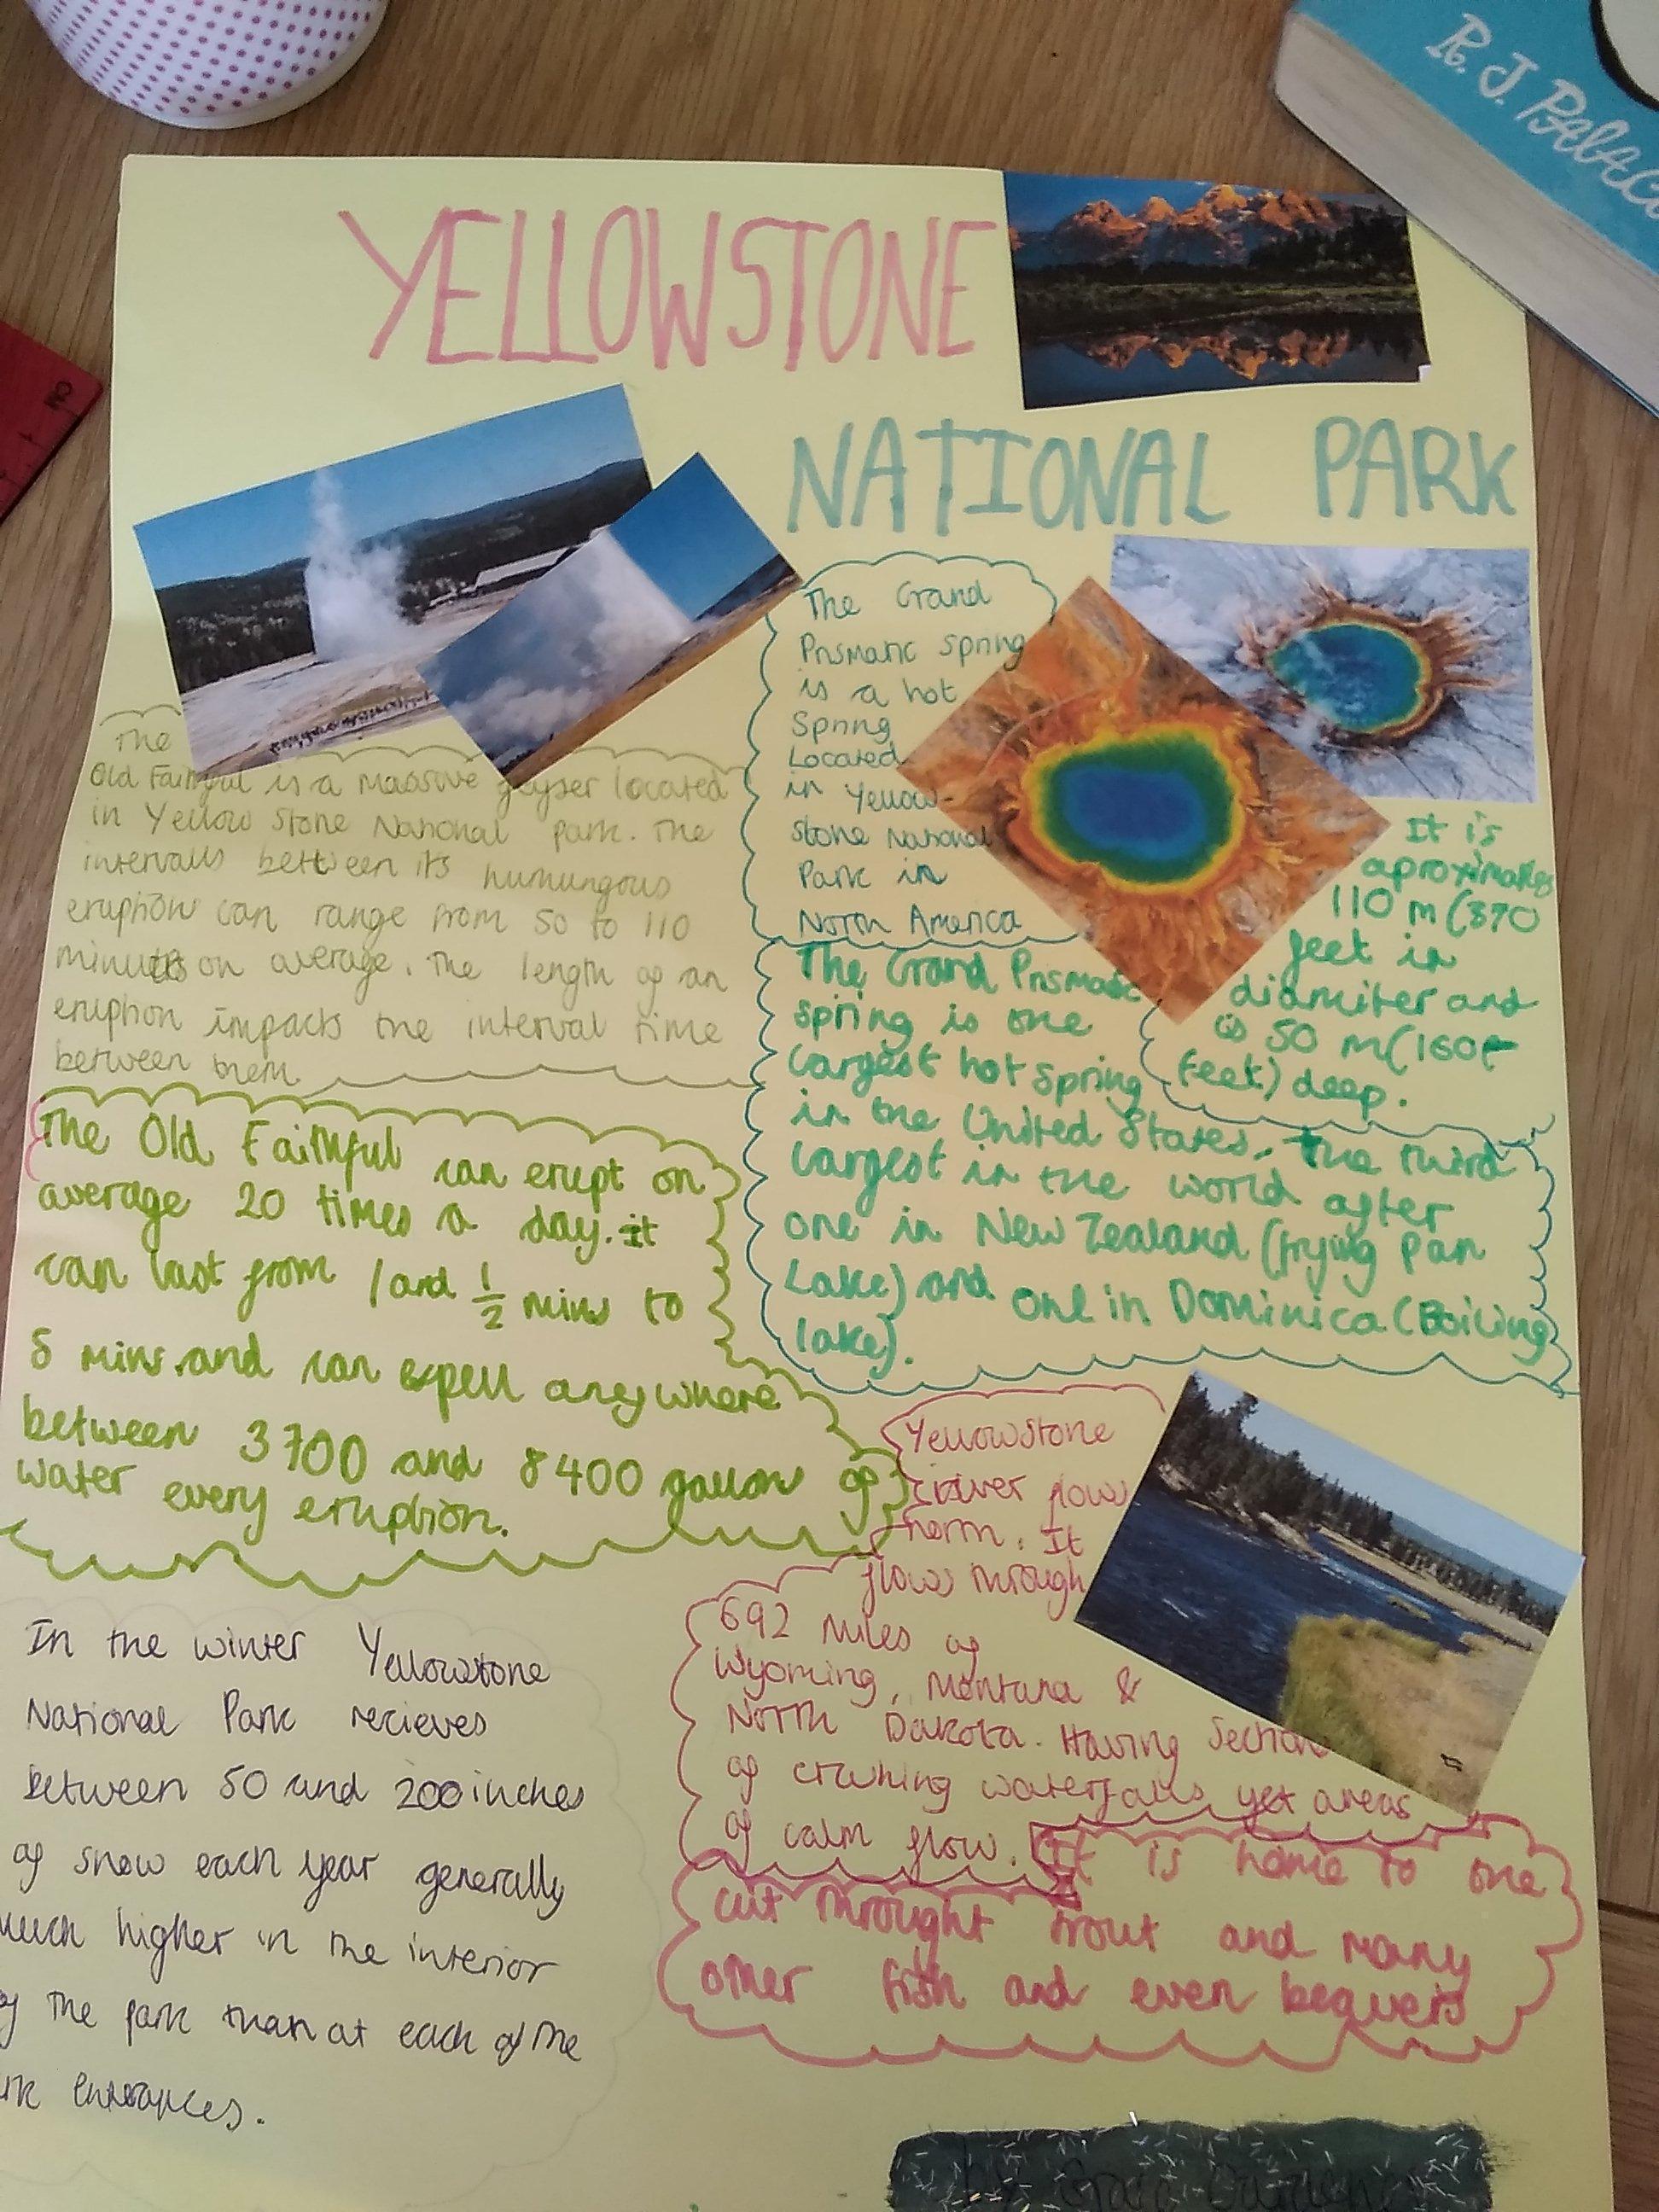 R. J. Palacio
YELLOWSTONE
NATIONAL PARK
cm
The
Old Faithful is a massive geyser located
in Yellow Stone National park. The
intervalls between its humungous
eruptions can range from 50 to 110
minutes on average. The length of an
eruption impacts the interval time
between them.
The Old Faithful can erupt on
average 20 times a day. it
can last from 1 and 1/2 mins to
5 mins and can expell anywhere
between 3700 and 8400 gallons of
water every eruption.
In the winter Yellowstone
National Park recieves
between 50 and 200 inches
of snow each year generally
much higher in the interior
of the park than at each of the
entrances.
The Grand
Prismatic spring
is a hot
Spring
Located
in Yellow-
stone National
Park in
North America
It is
aproximately
110 m (370
feet in
diamiter and
is 50 m (160
feet) deep.
The Grand Prismatic
spring is one
largest hot spring
in the United States, the third
largest in the world after
one in New Zealand (frying Pan
Lake) and one in Dominica (Boiling
lake).
Yellowstone
river flows
north. It
flows through
692 Miles of
Wyoming, Montana &
North Dakota. Having Section
of crushing waterfalls yet areas
of calm flow. It is home to one
cut throught trout and many
other fish and even beavers
by